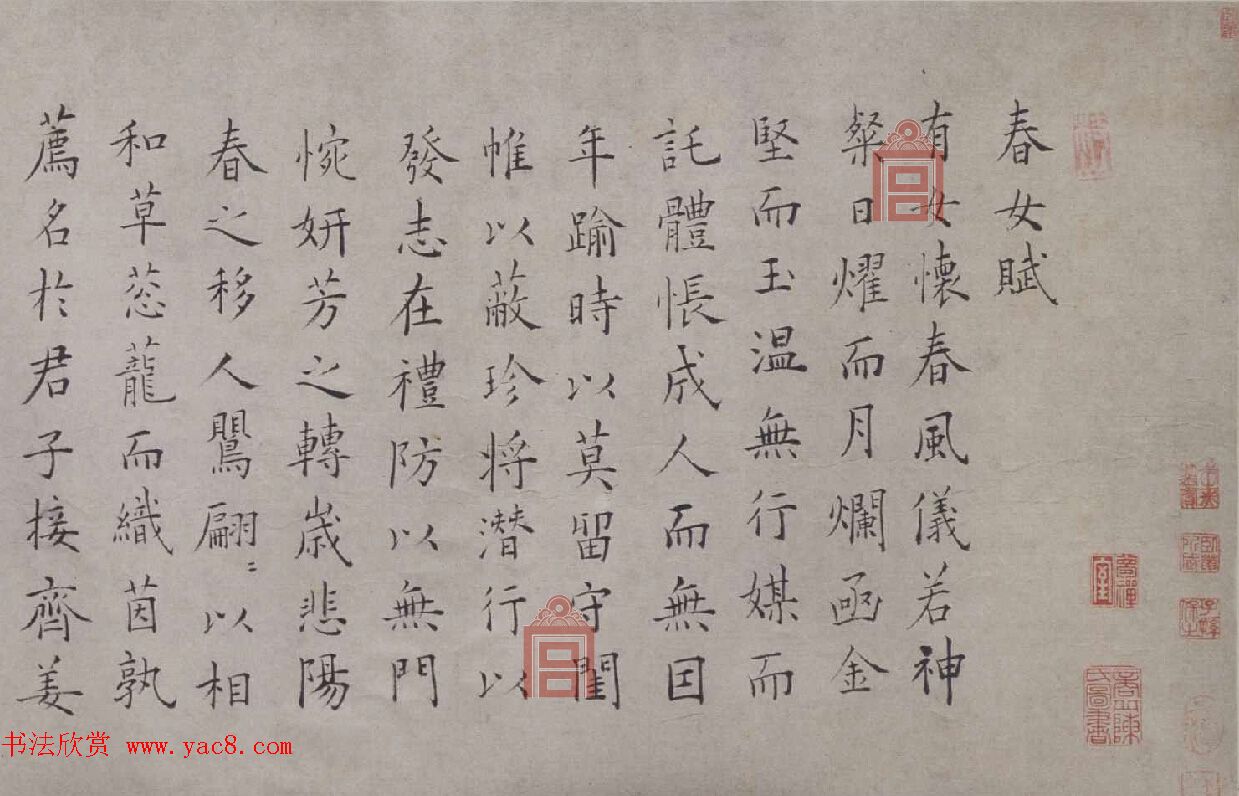 春女賦
有女懷春風儀若神
粲日耀而月爛函金
堅而玉温無行媒而
託體悵成人而無因
年踰時以莫留守閨
帷以蔽珍将潜行以
發志在禮防以無門
惋妍芳之轉歳悲陽
春之移人鸎翩〻以相
和草蒸蘢而織茵孰
薦名於君子接齊姜
书法欣赏 www.yac8.com